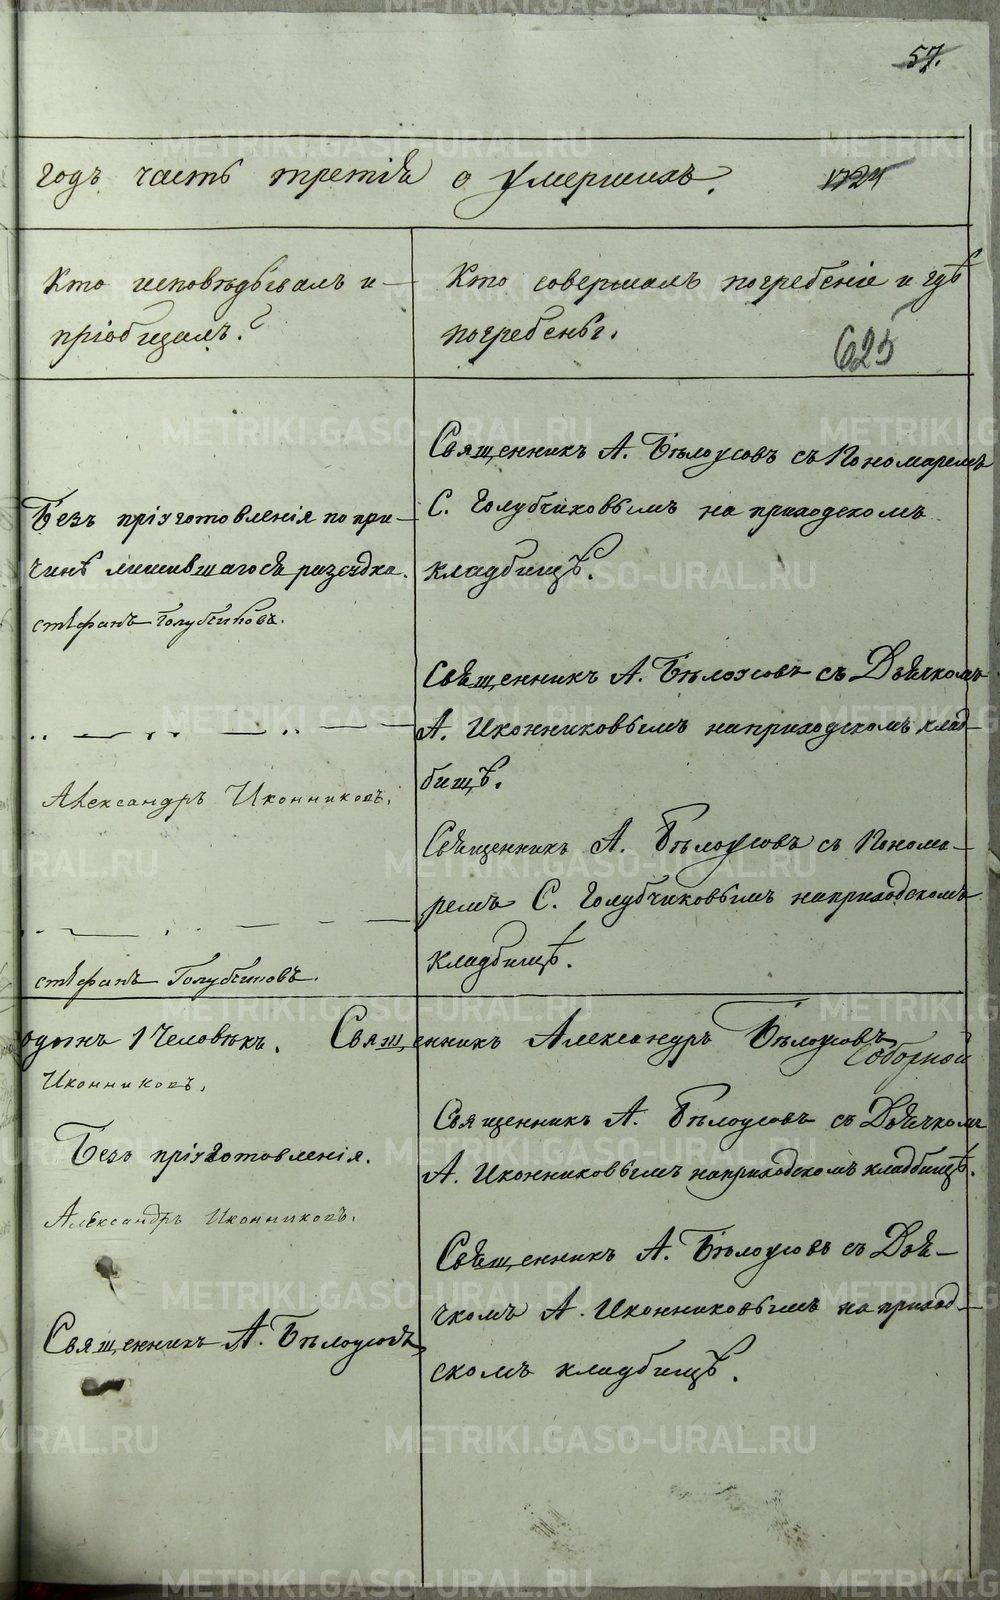 57.
годъ часть третія о умершихъ. 1724
Кто исповѣдывалъ и
пріобщалъ?
Кто совершалъ погребеніе и гдѣ
погребены.
625
Священникъ А. Бѣлоусовъ съ Пономаремъ
С. Голубчиковымъ на приходскомъ
кладбищѣ.
Безъ пріуготовленія по при-
чинѣ лишившагося разсудка.
стефанъ Голубчиковъ.
Священникъ А. Бѣлоусовъ съ Дьячкомъ
А. Иконниковымъ на приходскомъ клад-
бищѣ.
Александръ Иконниковъ.
Священникъ А. Бѣлоусовъ съ Понома-
ремъ С. Голубчиковымъ на приходскомъ
кладбищѣ.
стефанъ Голубчиковъ.
одинъ 1 Человѣкъ. Священникъ Александръ Бѣлоусовъ
Соборной
Иконниковъ.
Священникъ А. Бѣлоусовъ съ Дьячкомъ
А. Иконниковымъ на приходскомъ кладбищѣ.
Безъ пріуготовленія.
Александръ Иконниковъ.
Священникъ А. Бѣлоусовъ съ Дья-
чкомъ А. Иконниковымъ на приход-
скомъ кладбищѣ.
Священникъ А. Бѣлоусовъ
METRIKI.GASO-URAL.RU